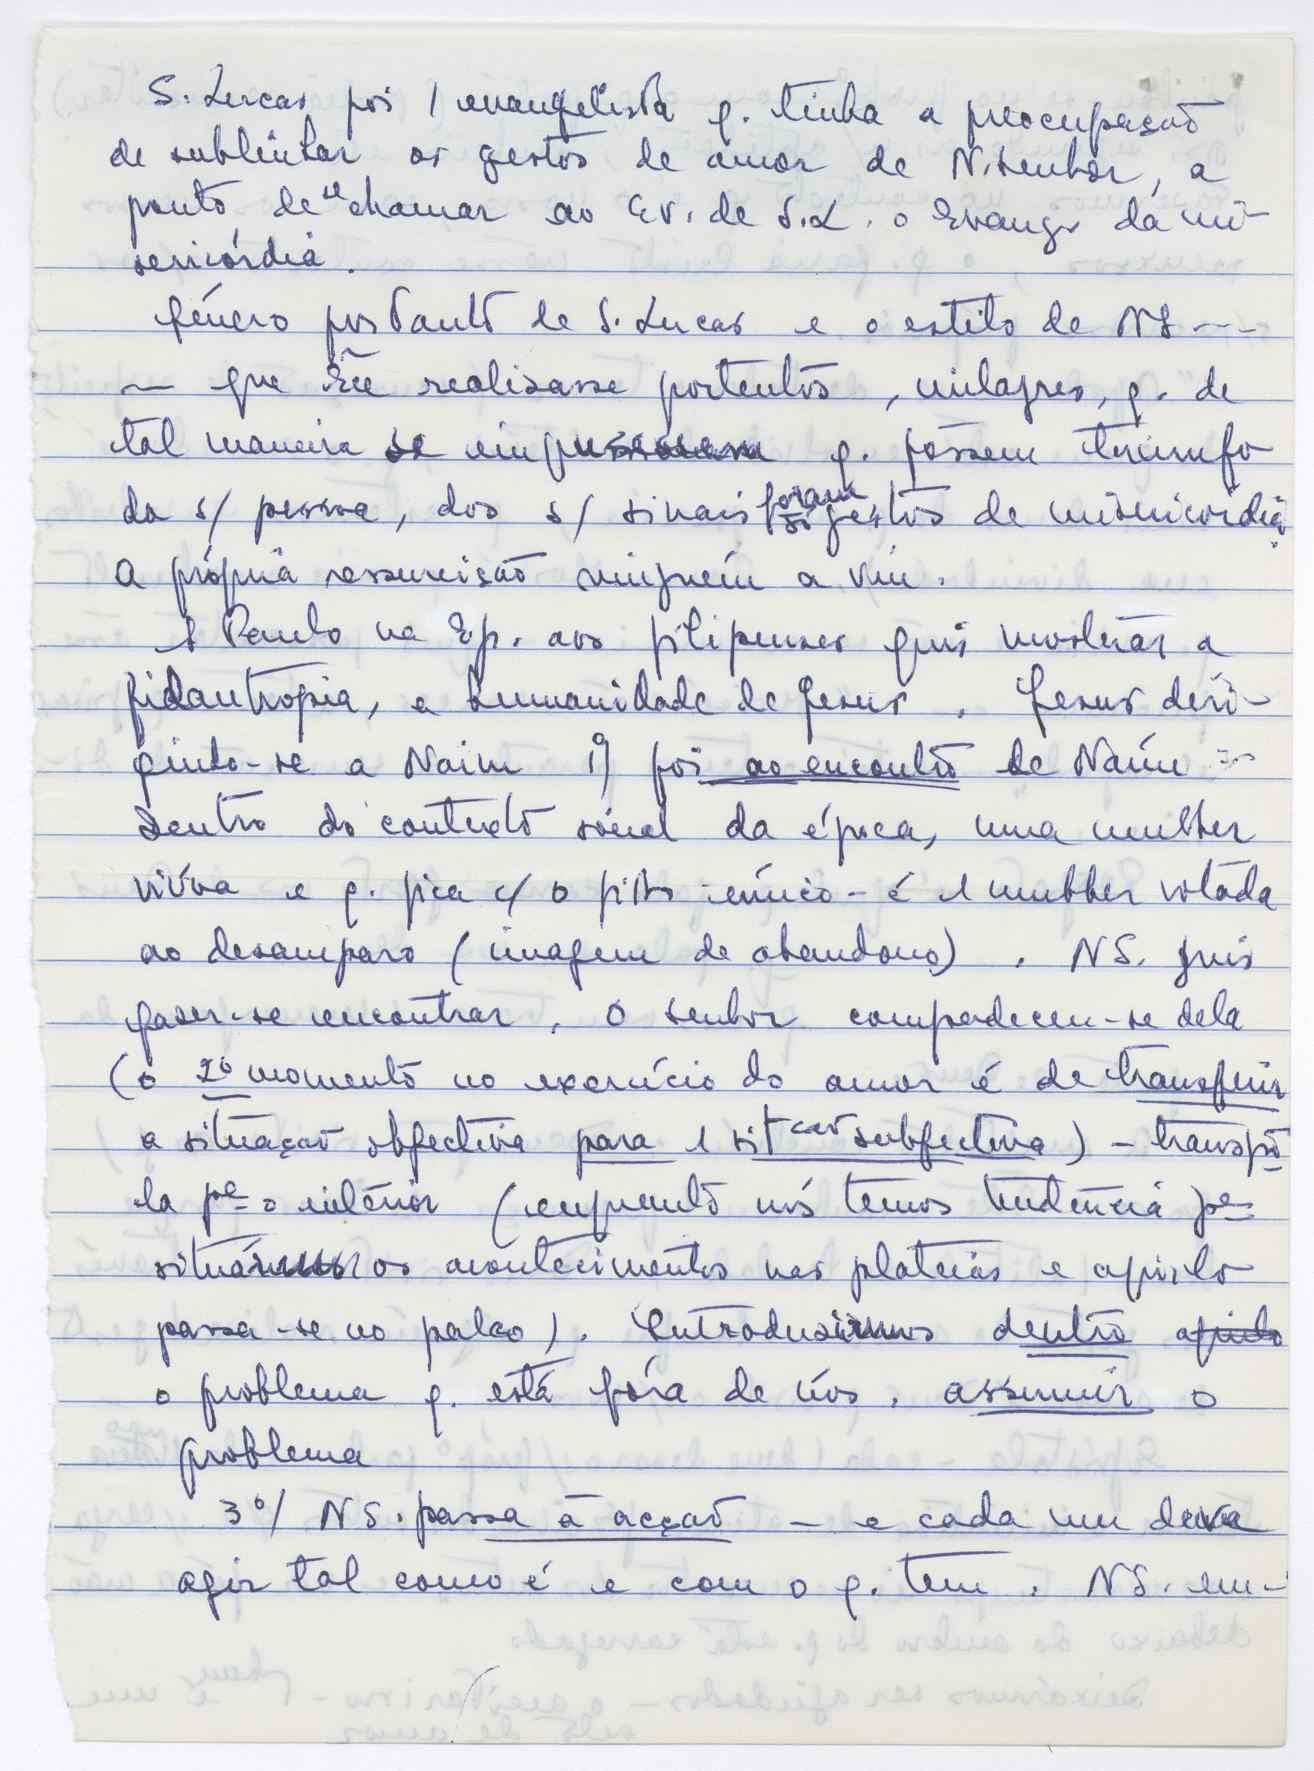 S. Lucas foi 1 evangelista q. tinha a preocupação
de sublinhar os gestos de amor de N. Senhor, a
ponto de se chamar ao Ev. de S.L. o Evang. da mi-
sericórdia.
Género portanto de S. Lucas e o estilo de NS ---
— que Ele realisasse portentos, milagres, q. de
tal maneira se q. fossem triunfo
da s/ pessoa, dos s/ sinais foram gestos de misericórdia.
A própria ressurreição ninguém a viu.
S Paulo na Ep. aos filipenses quis mostrar a
filantropia, a humanidade de Jesus. Jesus diri-
gindo-se a Naim 1º foi ao encontro de Naim
Dentro do contexto social da época, uma mulher
viúva e q. fica c/ o filho único - é 1 mulher votada
ao desamparo (imagem de abandono). NS. quis
fazer-se encontrar. O Senhor compadeceu-se dela
(o 2º momento no exercício do amor é de transferir
a situação objectiva para 1 sitção subjectiva) - transpô-
la pª o interior (enquanto nós temos tendência pª
situármos os acontecimentos nas plateias e aquilo
passa-se no palco). Introduzirmos dentro aquilo
o problema q. está fóra de nós, assumir o
problema
3º/ NS. passa à acção - e cada um deve
agir tal como é e com o q. tem. NS. em-